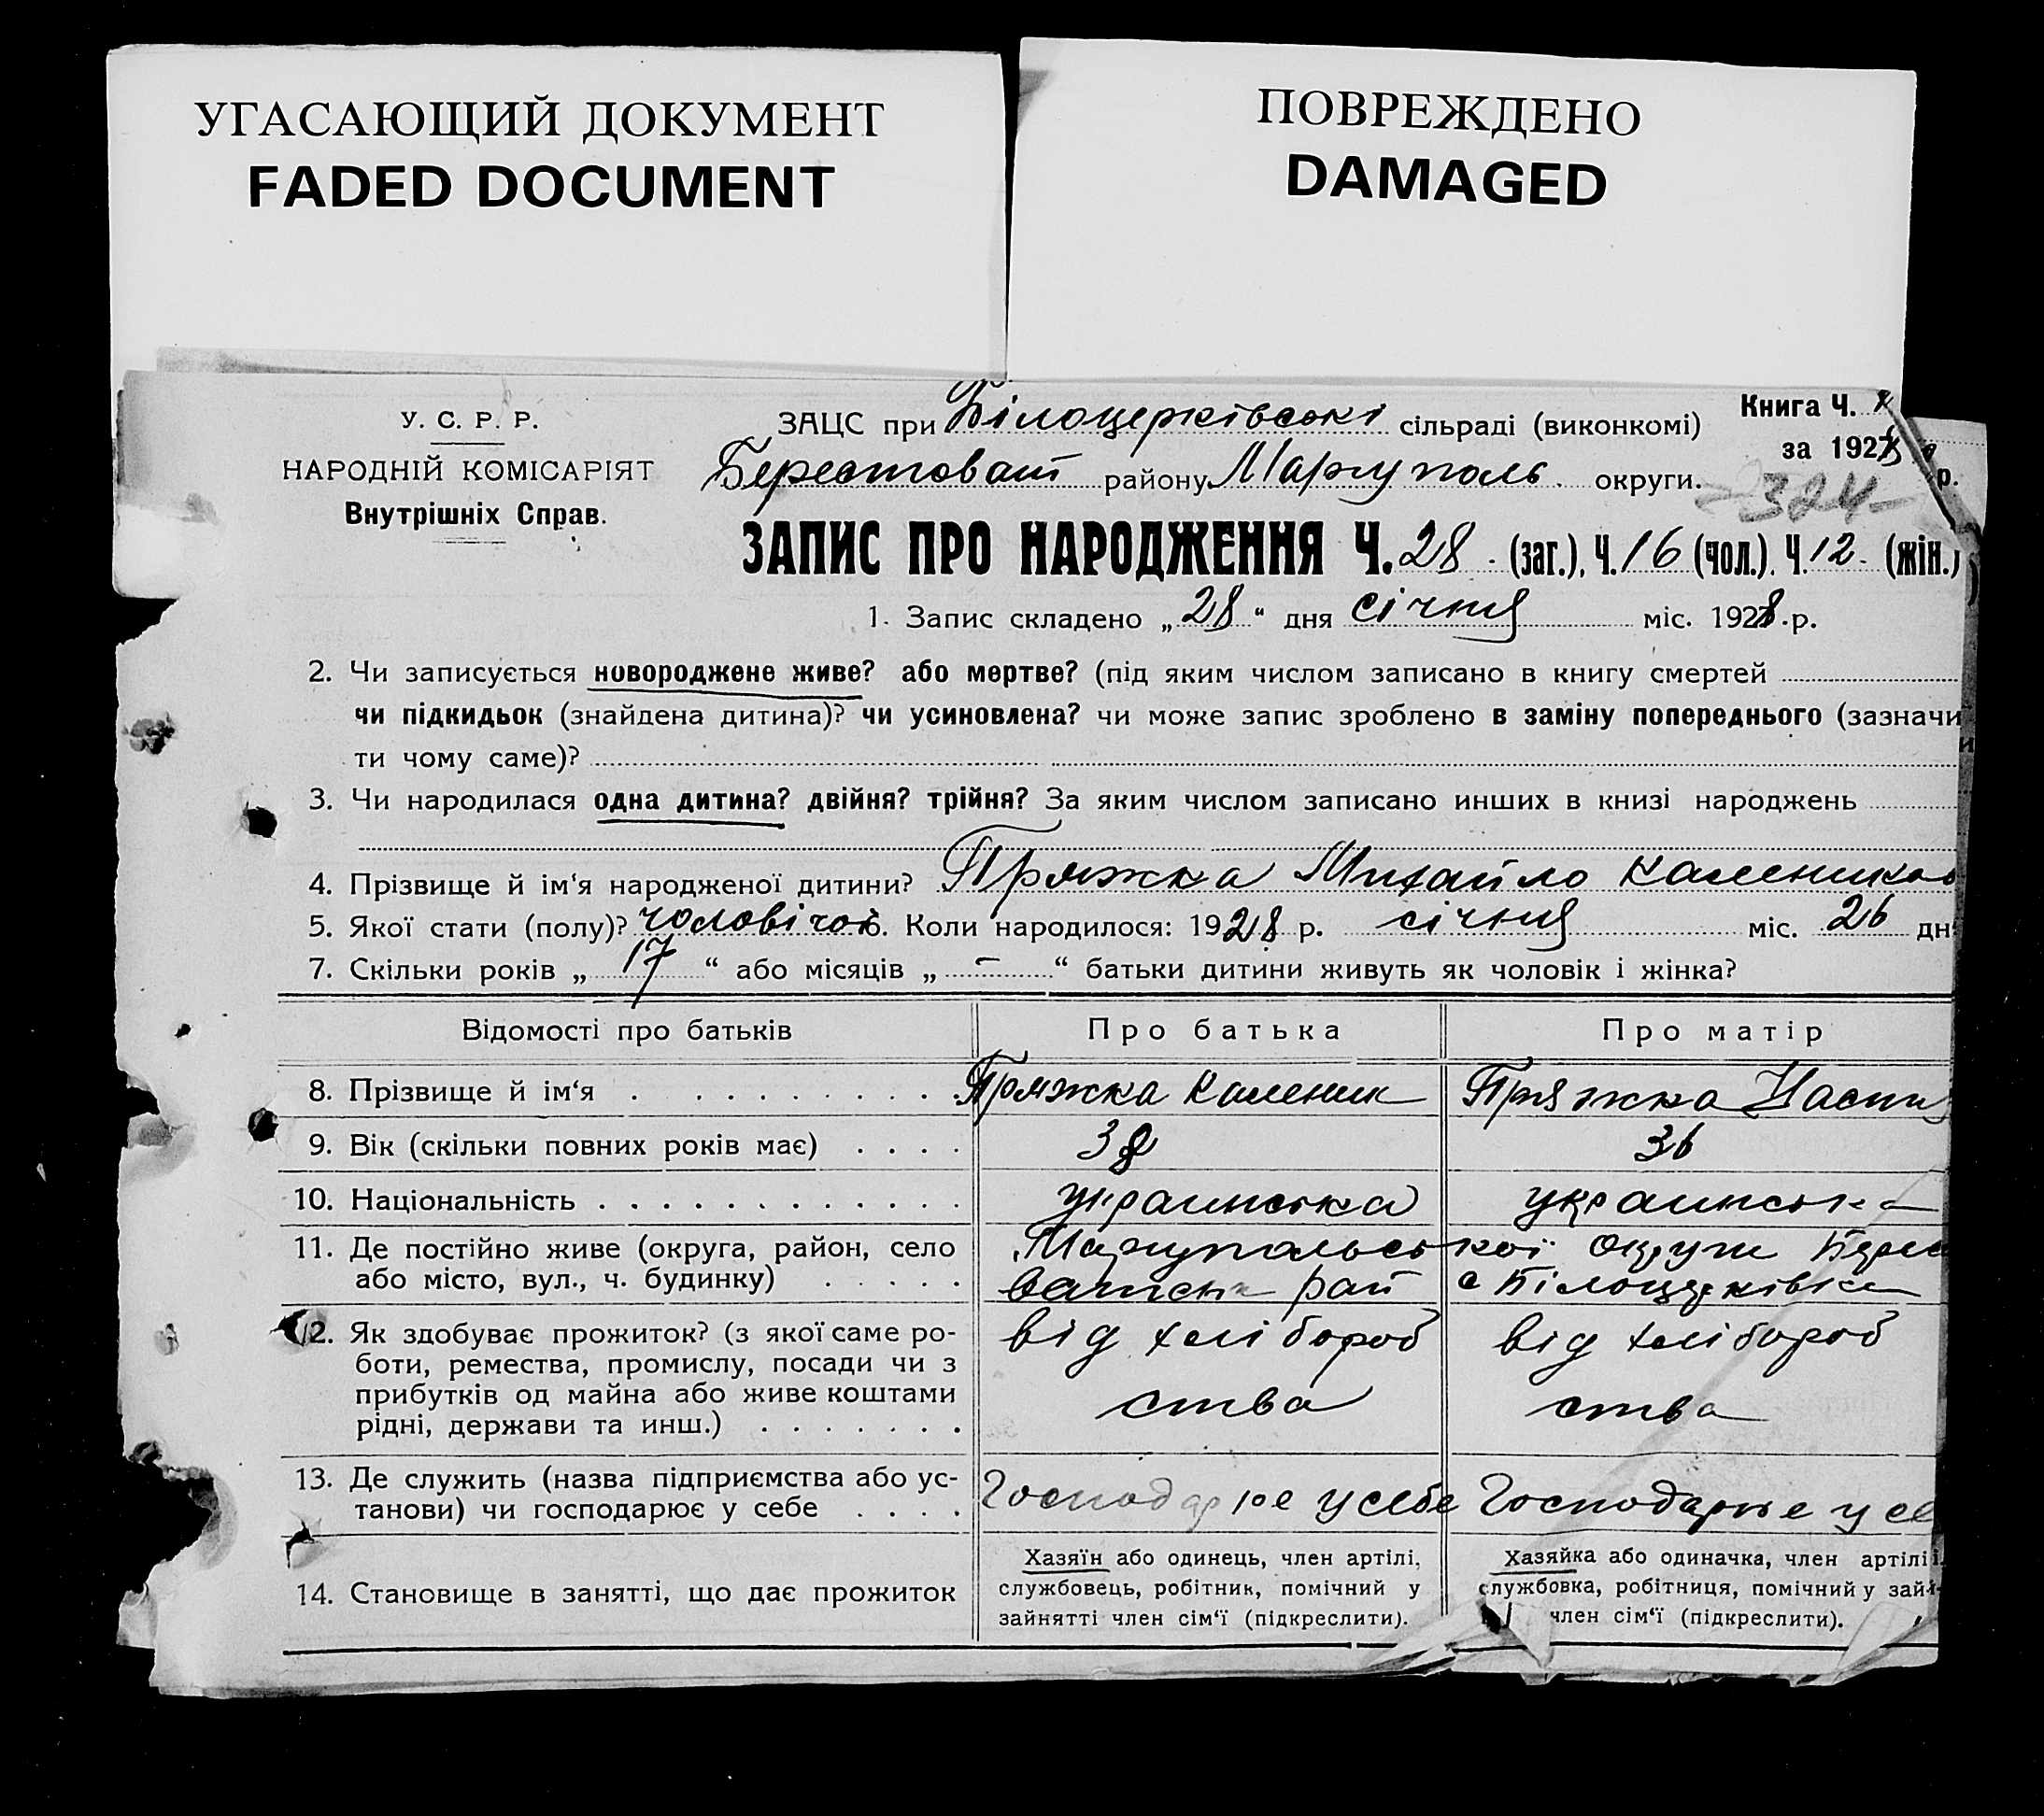 УГАСАЮЩИЙ ДОКУМЕНТ
FADED DOCUMENT
ПОВРЕЖДЕНО
DAMAGED
У. С. Р. Р.
НАРОДНІЙ КОМІСАРІЯТ
Внутрішніх Справ.
ЗАЦС при Білоцерківські сільраді (виконкомі)
Берестоват району Маріуполь округи.
Книга Ч.
за 1928 р.
324
ЗАПИС ПРО НАРОДЖЕННЯ Ч. 28 (заг.), Ч. 16 (чол.). Ч. 12. (жін.)
1. Запис складено „28“ дня січня міс. 1928.р.
2. Чи записується новороджене живе? або мертве? (під яким числом записано в книгу смертей
чи підкидьок (знайдена дитина)? чи усиновлена? чи може запис зроблено в заміну попереднього (зазначи
ти чому саме)?
3. Чи народилася одна дитина? двійня? трійня? За яким числом записано инших в книзі народжень
4. Прізвище й ім‘я народженої дитини? Пряжка Михайло Калеников
5. Якої стати (полу)? чоловічої 6. Коли народилося: 1928 р. січня міс. 26 дн
7. Скільки років „ 17 “ або місяців „ - “ батьки дитини живуть як чоловік і жінка?
Відомості про батьків Про батька Про матір
8. Прізвище й ім‘я Пряжка Каленик Пряжка Насти
9. Вік (скільки повних років має) 38 36
10. Національність украинська украинська
11. Де постійно живе (округа, район, село Маріупольської округи Бере
або місто, вул., ч. будинку) ватськ рай с Білоцерківка
12. Як здобуває прожиток? (з якої саме ро- від хлібороб від хлібороб
боти, ремества, промислу, посади чи з
прибутків од майна або живе коштами ства ства
рідні, держави та инш.)
13. Де служить (назва підприємства або ус- Господарює у себе Господарює у се
танови) чи господарює у себе
14. Становище в занятті, що дає прожиток
Хазяїн або одинець, член артілі,
службовець, робітник, помічний у
зайнятті член сім‘ї (підкреслити).
Хазяйка або одиначка, член артілі
службовка, робітниця, помічний у зай-
член сім‘ї (підкреслити).